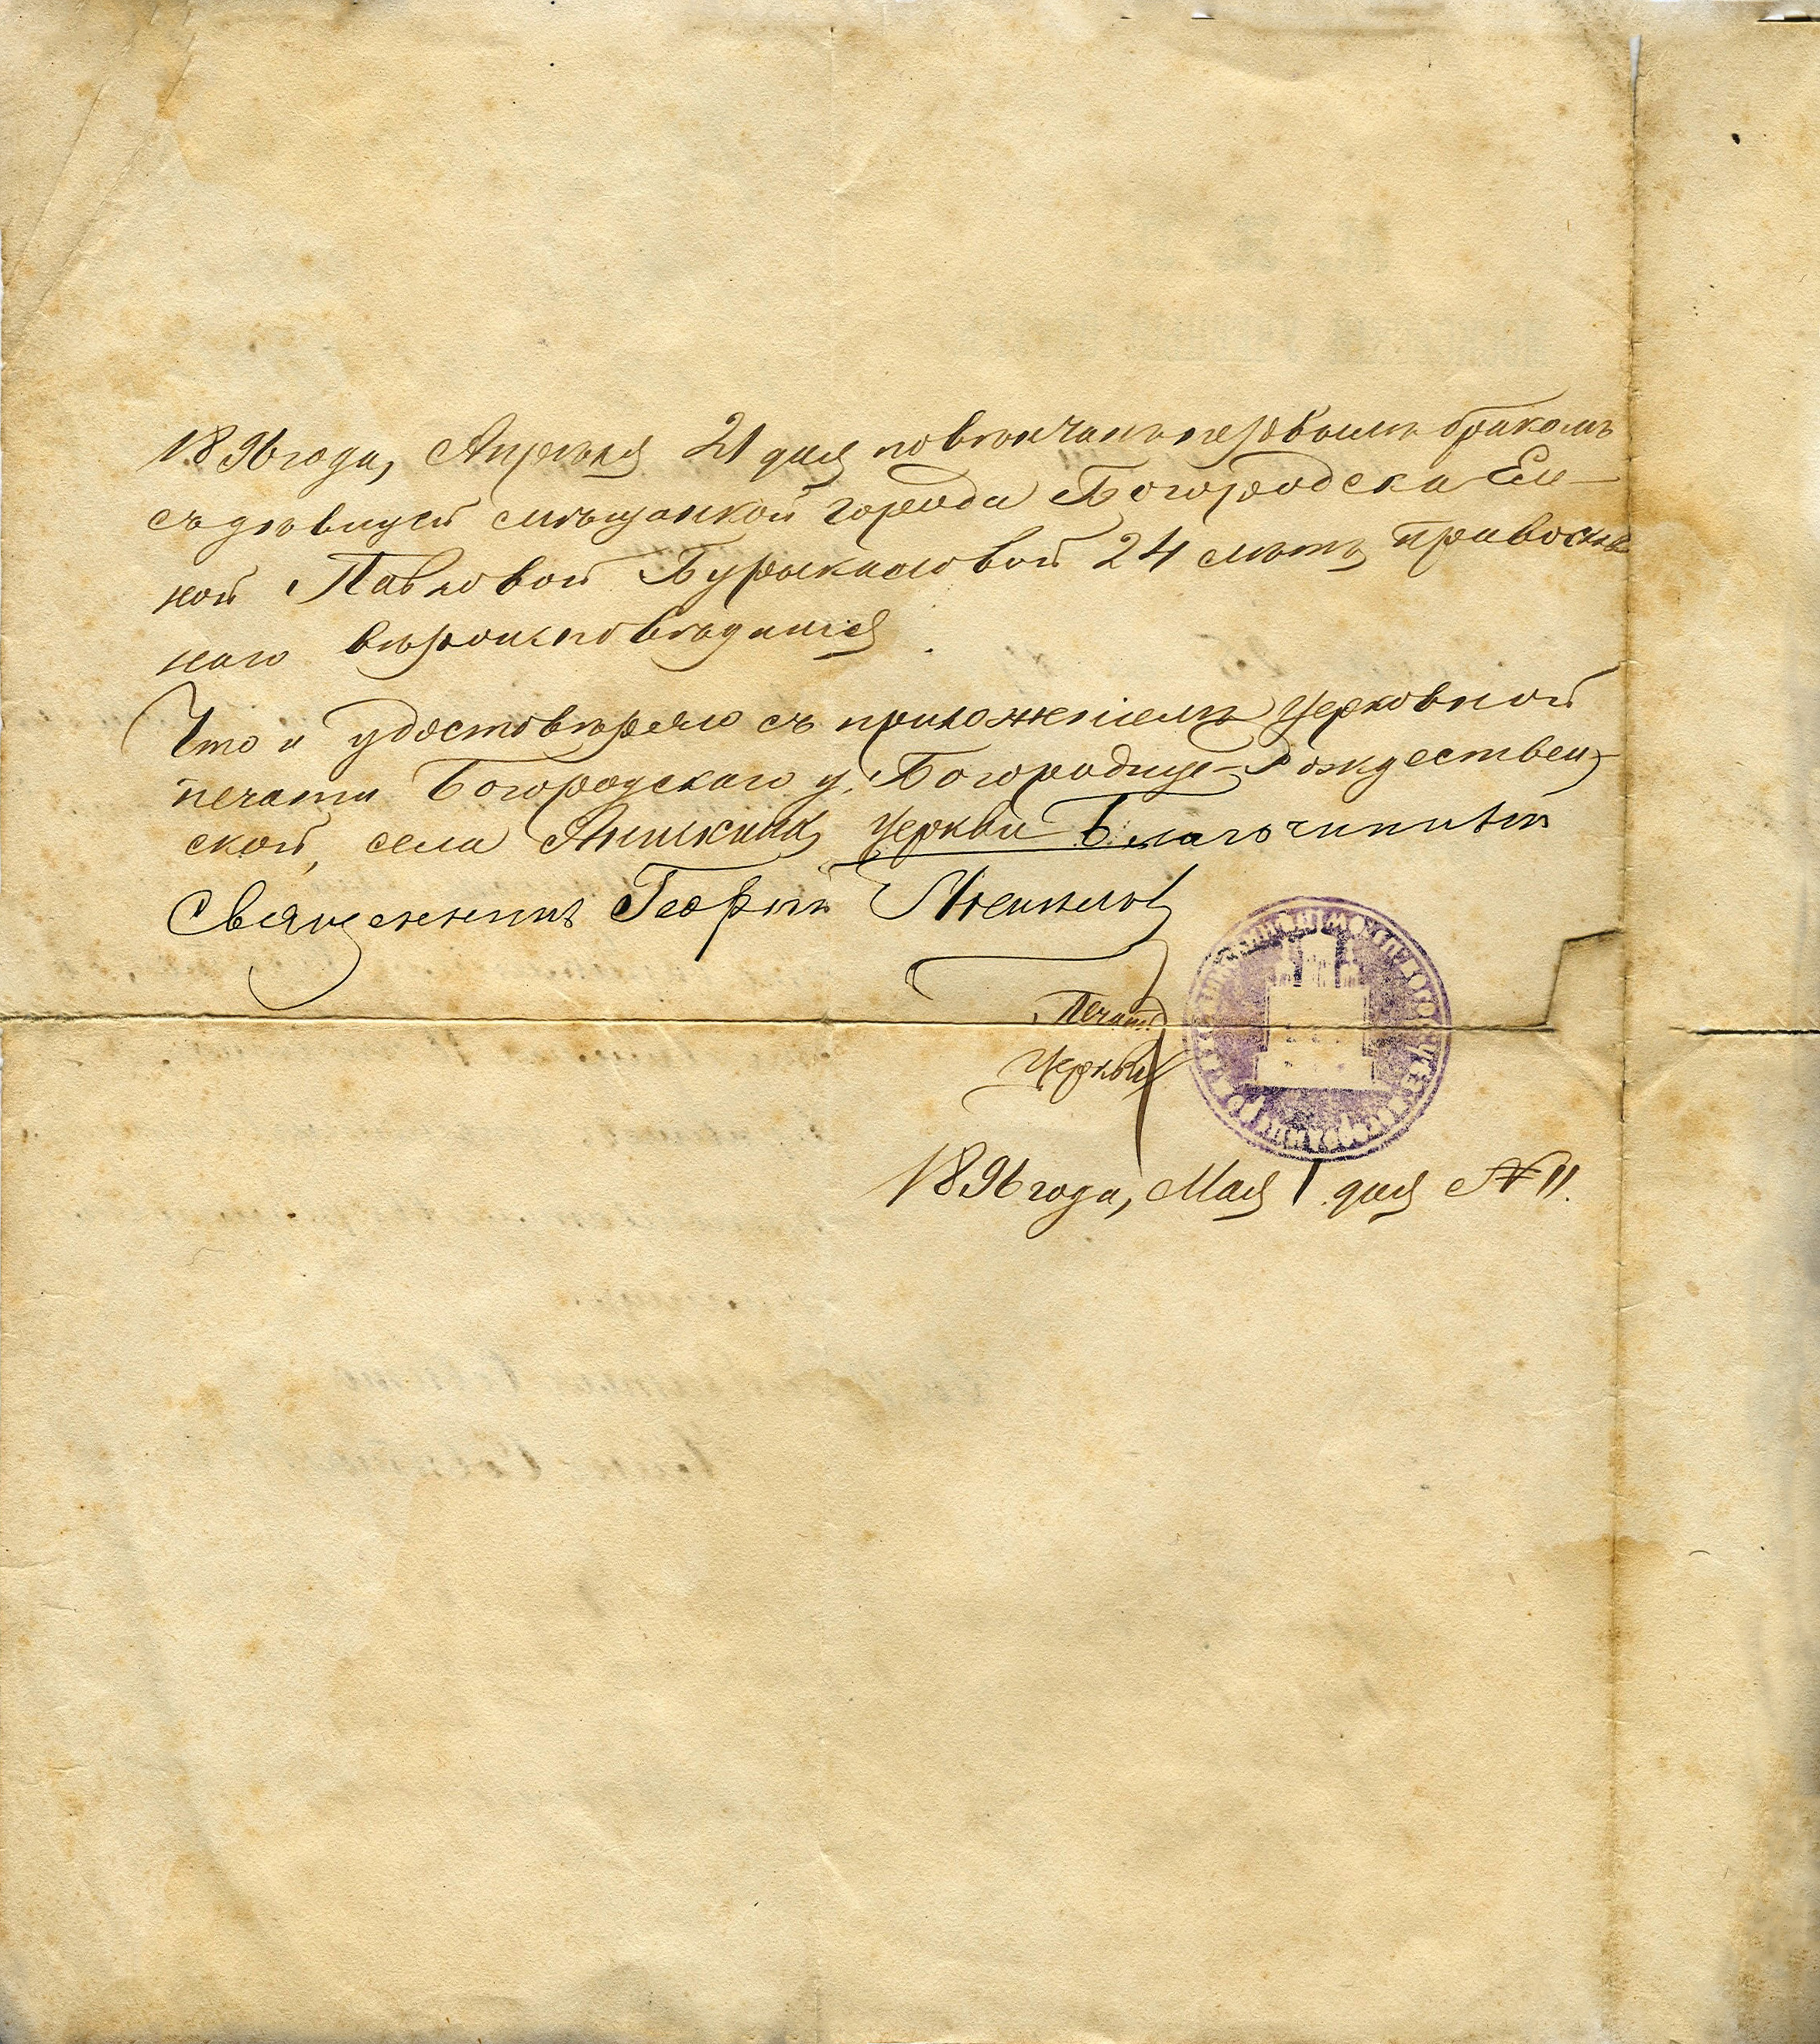 1896 года, Апреля 21 дня повѣнчанъ первымъ бракомъ
съ дѣвицей мѣщанкой города Богородска Еле-
ной Павловой Бурыкиной 24 лѣтъ, православ
наго вѣроисповѣданія.
Что и удостовѣряю съ приложеніемъ церковной
печати Богородскаго у. Богородице-Рождествен-
ской, села Анискина, церкви Благочинный
Священникъ Георгій
Печать
Церкви
1896 года, Мая 1 дня № 11.